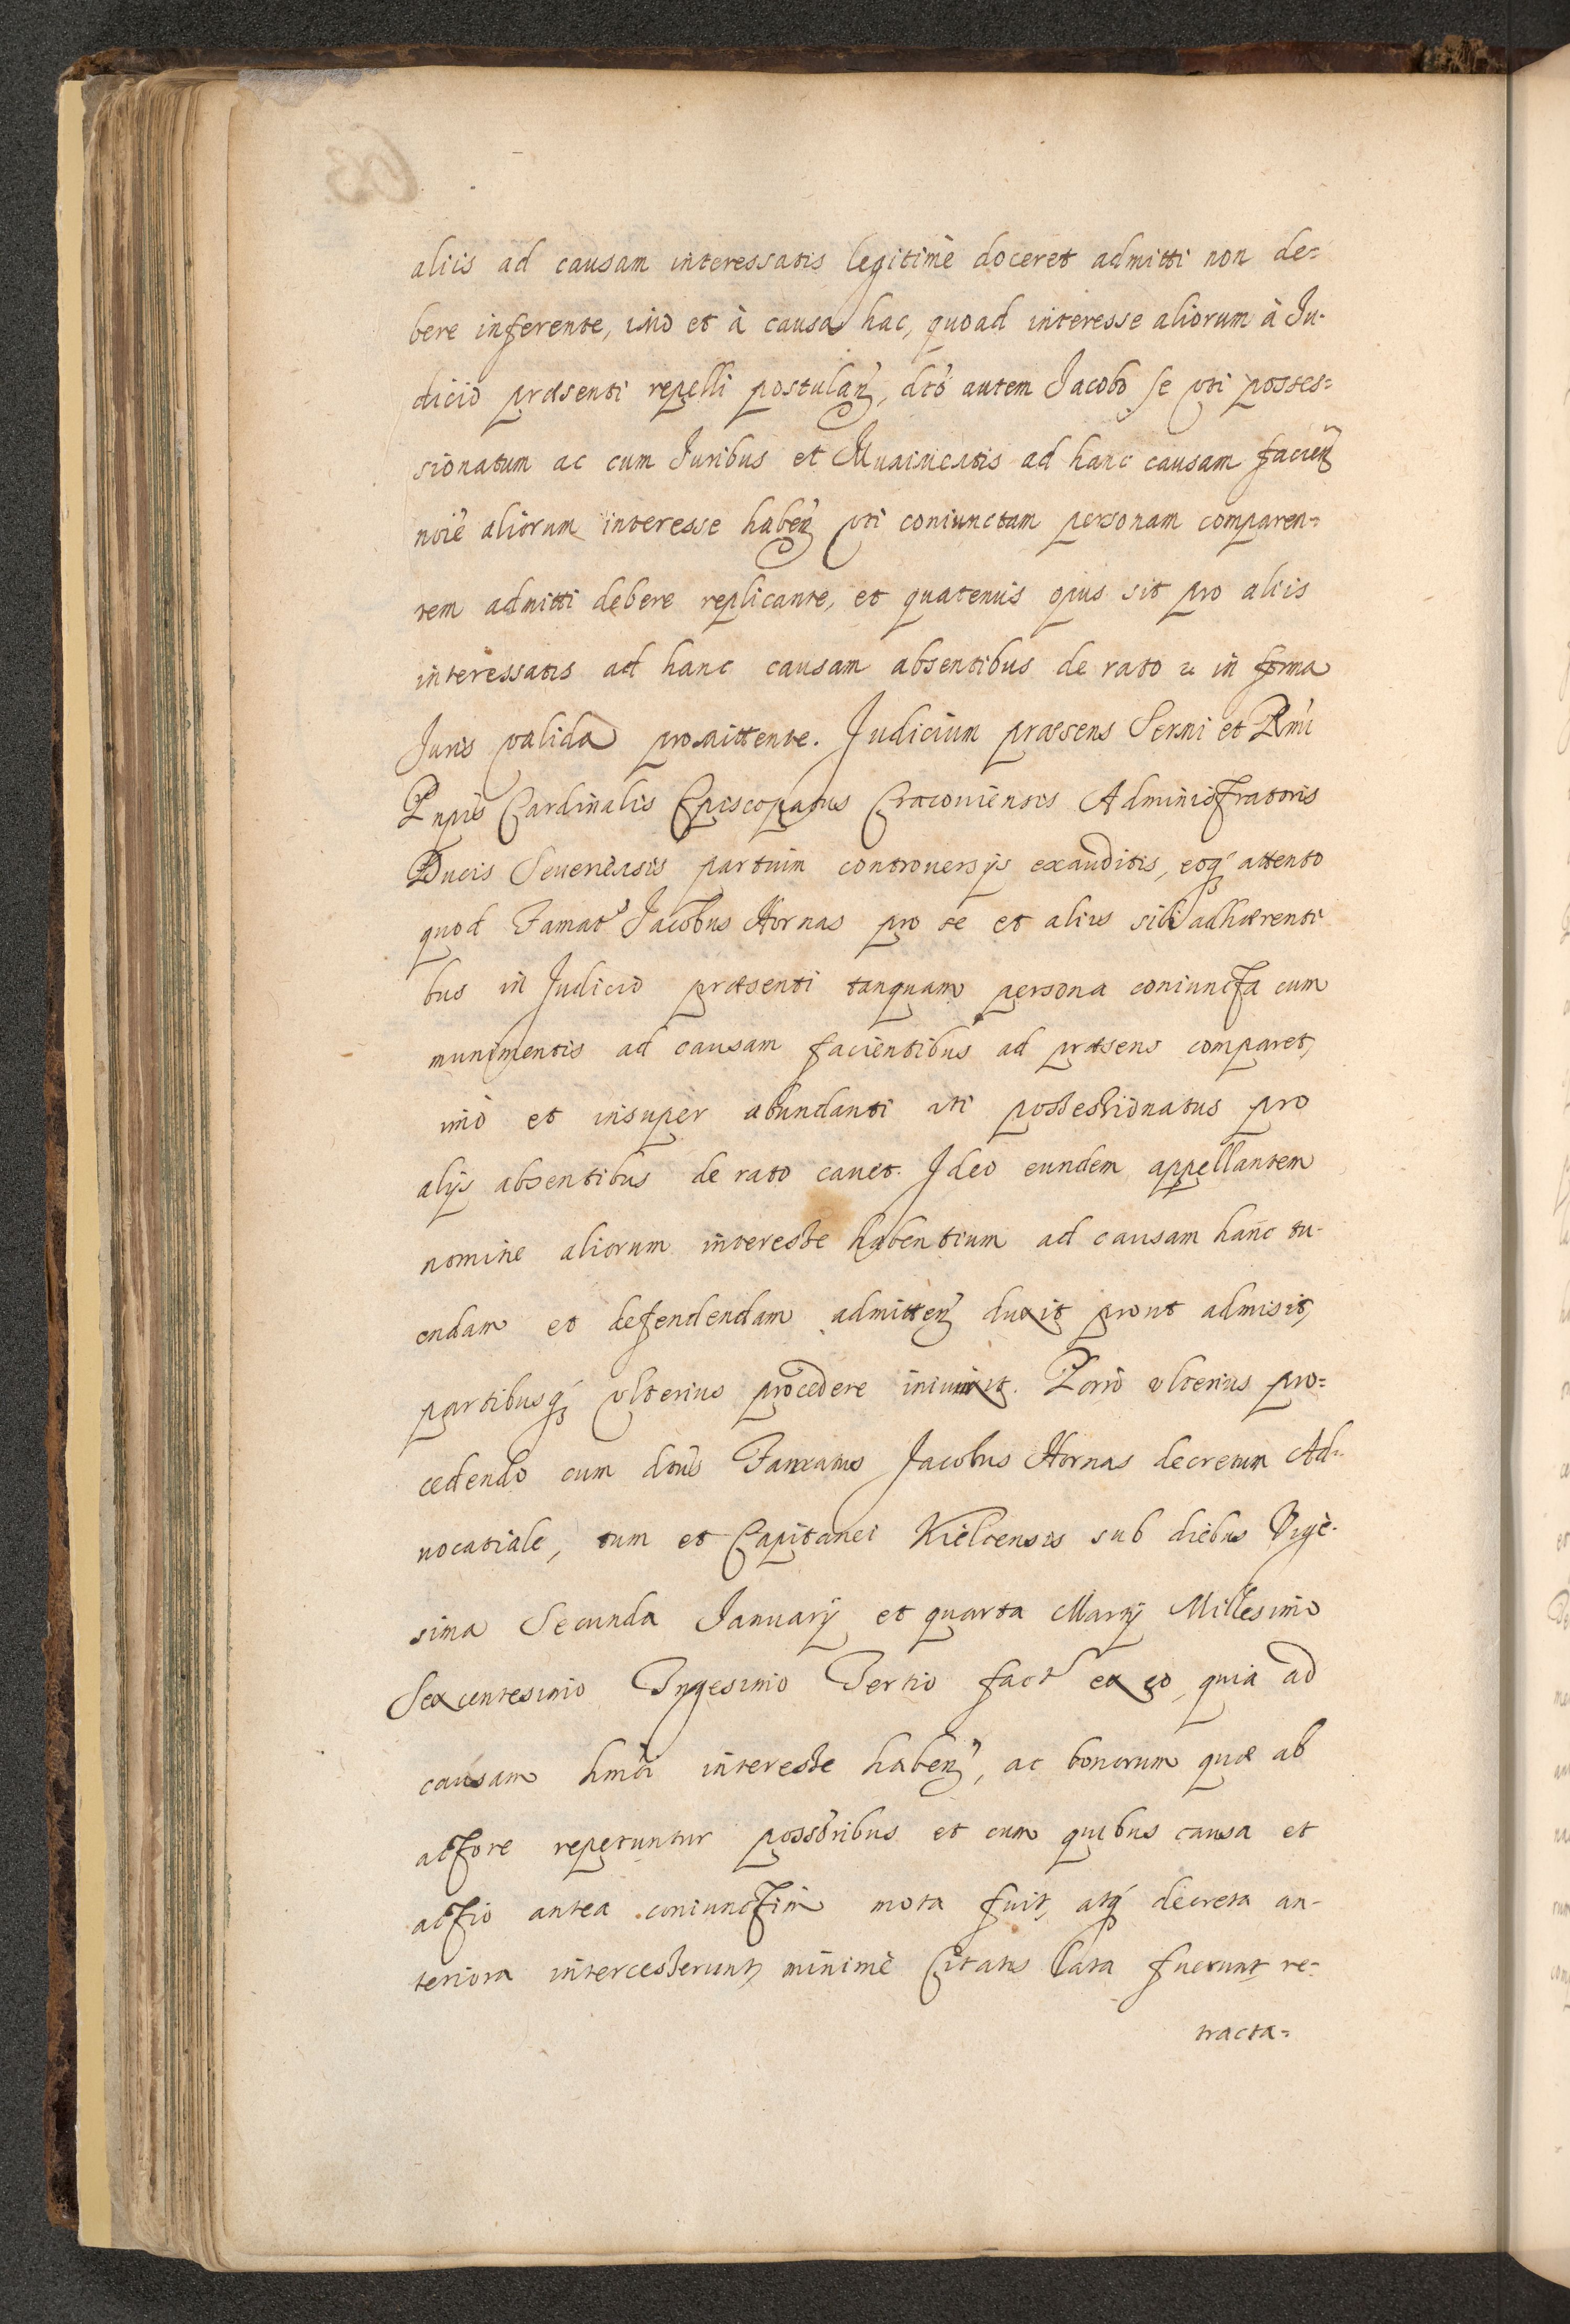 aliis ad causam interessatis legitimè doceret admitti non de=
bere inferente, imò et à causa hac, quoad interesse aliorum à Ju-
dicio præsenti repelli postulan, dcõ autem Jacobo se vti posses=
sionatum ac cum Juribus et Munimentis ad hanc causam facien
noĩe aliorum interesse haben vti coniunctam personam comparen=
tem admitti debere replicante, et quatenus opus sit pro aliis
interessatis ad hanc causam absentibus de rato &c in forma
Juris valida promittente. Judicium præsens Sermi et Rmi
Pnpis Cardinalis Episcopatus Cracouiensis Administratoris
Ducis Seueriensis partium controuersijs exauditis, eoq attento
quod Famatꝰ Jacobus Hornas pro se et aliis sibi adhærenti
bus in Judicio præsenti tanquam persona coniuncta cum
munimentis ad causam facientibus ad præsens comparet,
imò et insuper abundanti vti possessionatus pro
alijs absentibus de rato cauet. Ideo eundem appellantem
nomine aliorum interesse habentium ad causam hanc tu-
endam et defendendam admitten duxit prout admisit,
partibusq vlterius procedere iniunxit. Porrò vlterius pro=
cedendo cum dcũs Famatus Jacobus Hornas decretum Ad-
uocatiale, tum et Capitanei Kielcensis sub diebus Vige-
sima Secunda Januarij et quarta Martij Millesimo
Sexcentesimo Trigesimo Tertio fact ex eo quia ad
causam hmõi interesse haben, ac bonorum quæ ab
actore repetuntur possõribus et cum quibus causa et
actio antea coniunctim mota fuit, atq decreta an-
teriora intercesserunt, minimè Citatis lata fuerunt re-
tracta=